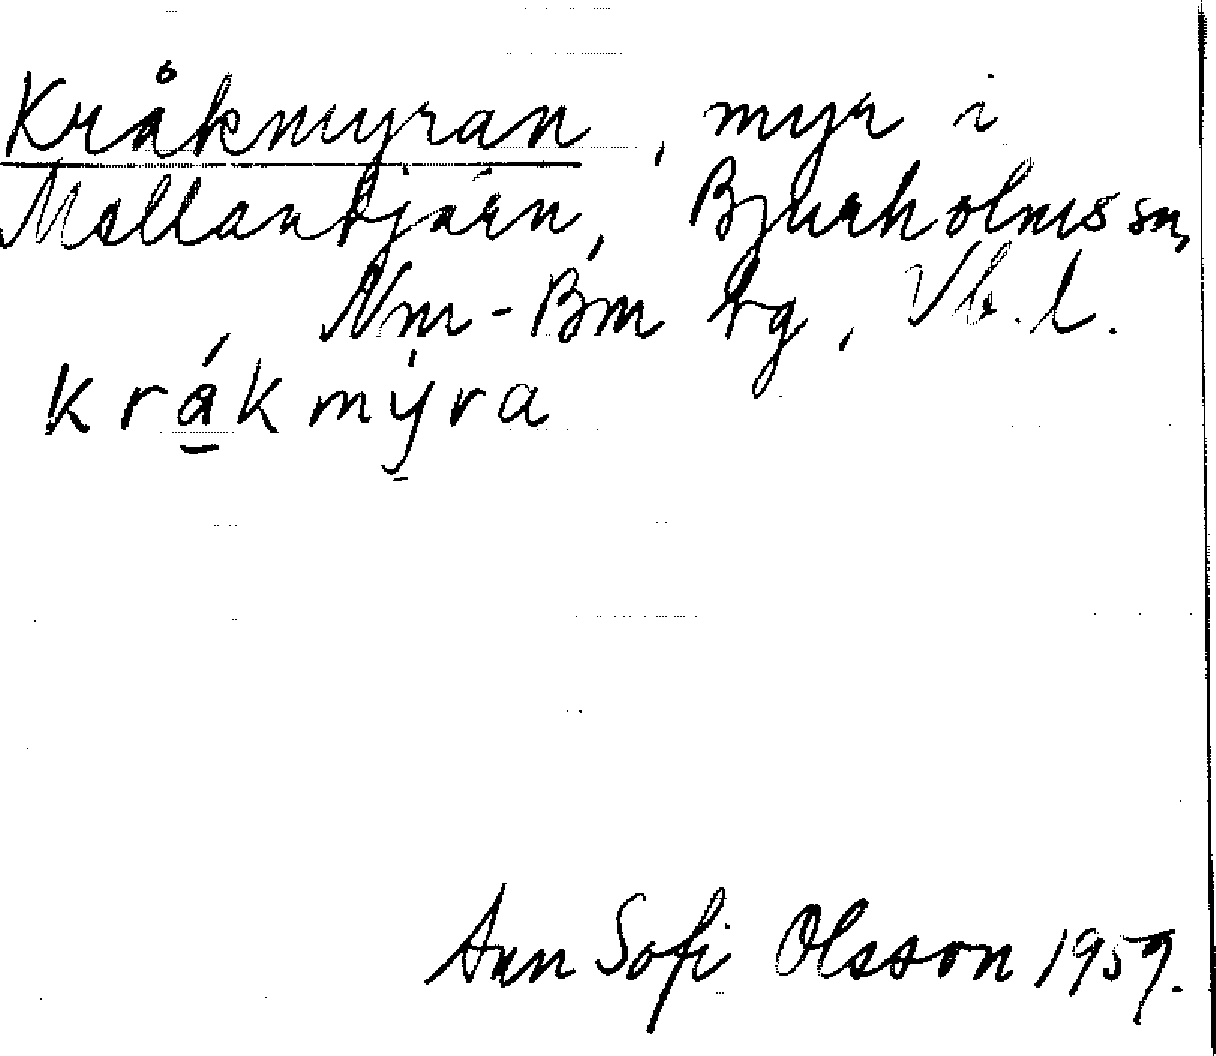 Kråkmyran, myr i
Mellantjärn, Bjurholms sn,
Nm-Bm tg, Vb.l.
krákmýra
Ann Sofi Olsson 1959.